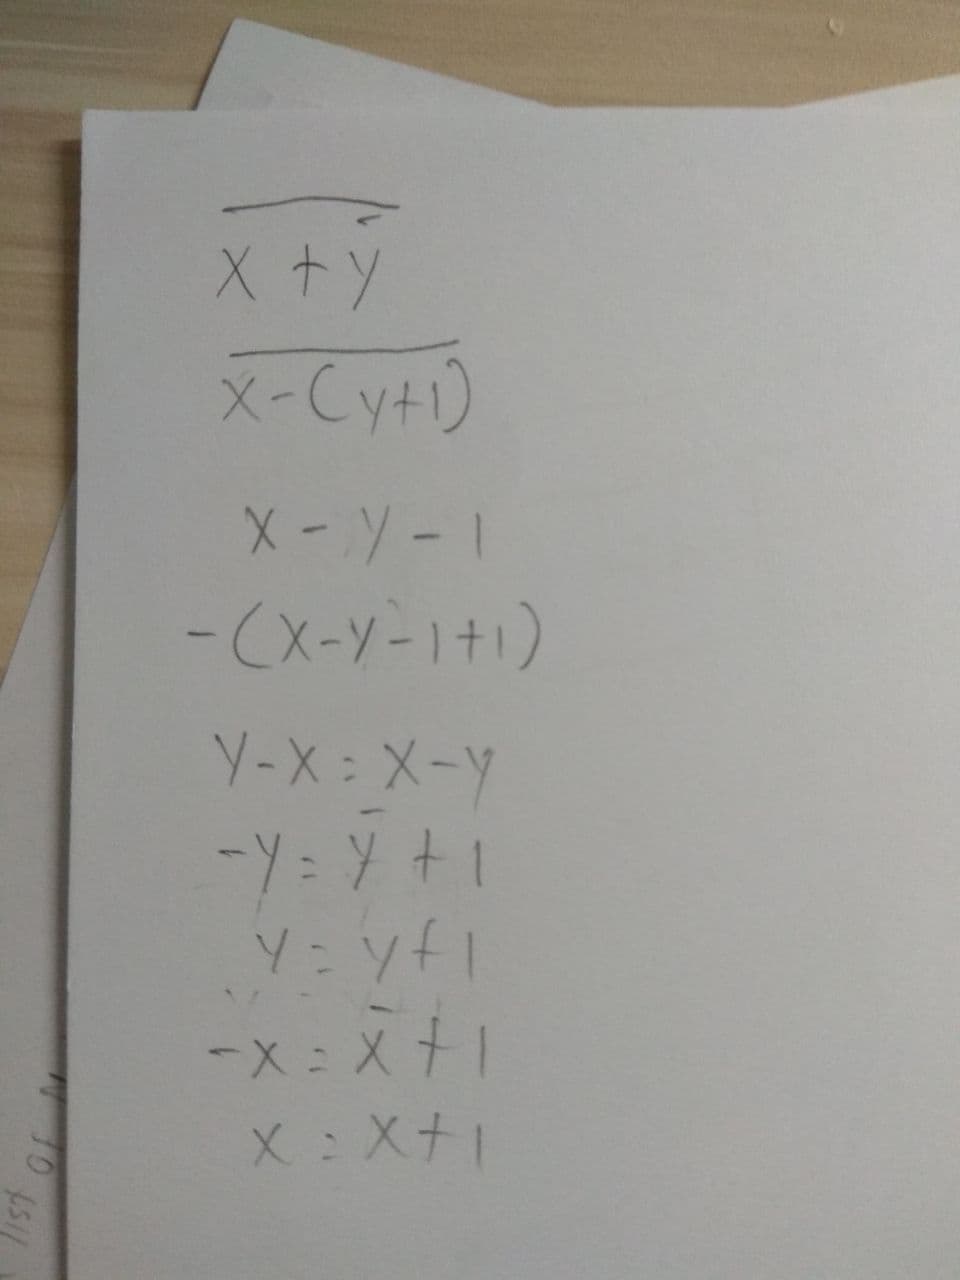 x̅ ̅+̅ ̅y̅̅
x̅ ̅-̅ ̅(̅y̅+̅1̅)̅
x - y - 1
-(x-y-1+1)
y-x = x-y
-y = y̅ + 1
y = y+1
-x = x̅ + 1
x = x+1
list of N